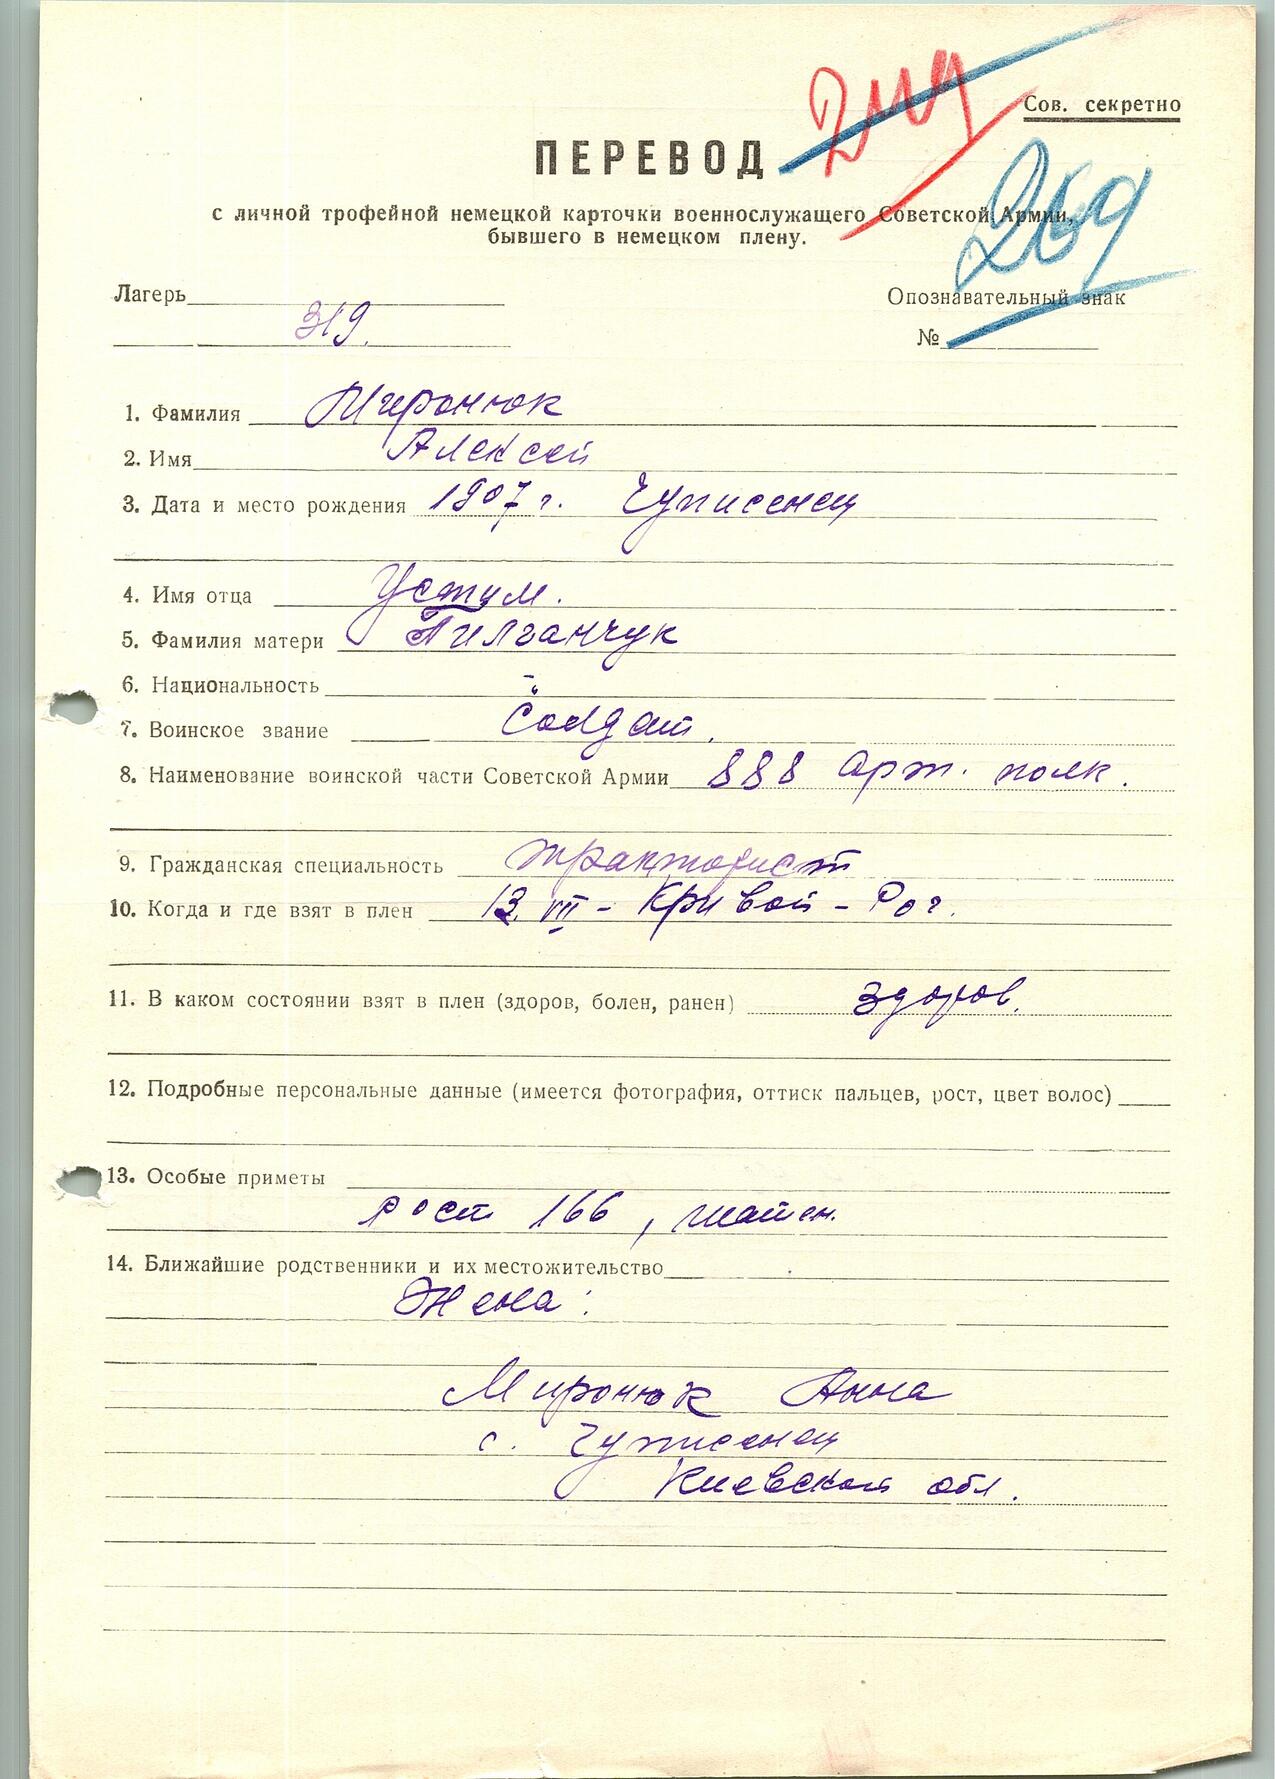 Сов. секретно
ПЕРЕВОД
с личной трофейной немецкой карточки военнослужащего Советской Армии,
бывшего в немецком плену.
269
Лагерь
319.
Опознавательный знак
№
1. Фамилия Миронюк
2. Имя Алексей
3. Дата и место рождения 1907 г.
4. Имя отца Устим.
5. Фамилия матери Пилганчук
6. Национальность - " -
7. Воинское звание Солдат.
8. Наименование воинской части Советской Армии 888 арт. полк.
9. Гражданская специальность тракторист
10. Когда и где взят в плен 13. VII - Кривой - Рог.
11. В каком состоянии взят в плен (здоров, болен, ранен) здоров.
12. Подробные персональные данные (имеется фотография, оттиск пальцев, рост, цвет волос)
13. Особые приметы
рост 166, шатен.
14. Ближайшие родственники и их местожительство
Жена:
Миронюк Анна
с.
Киевской обл.